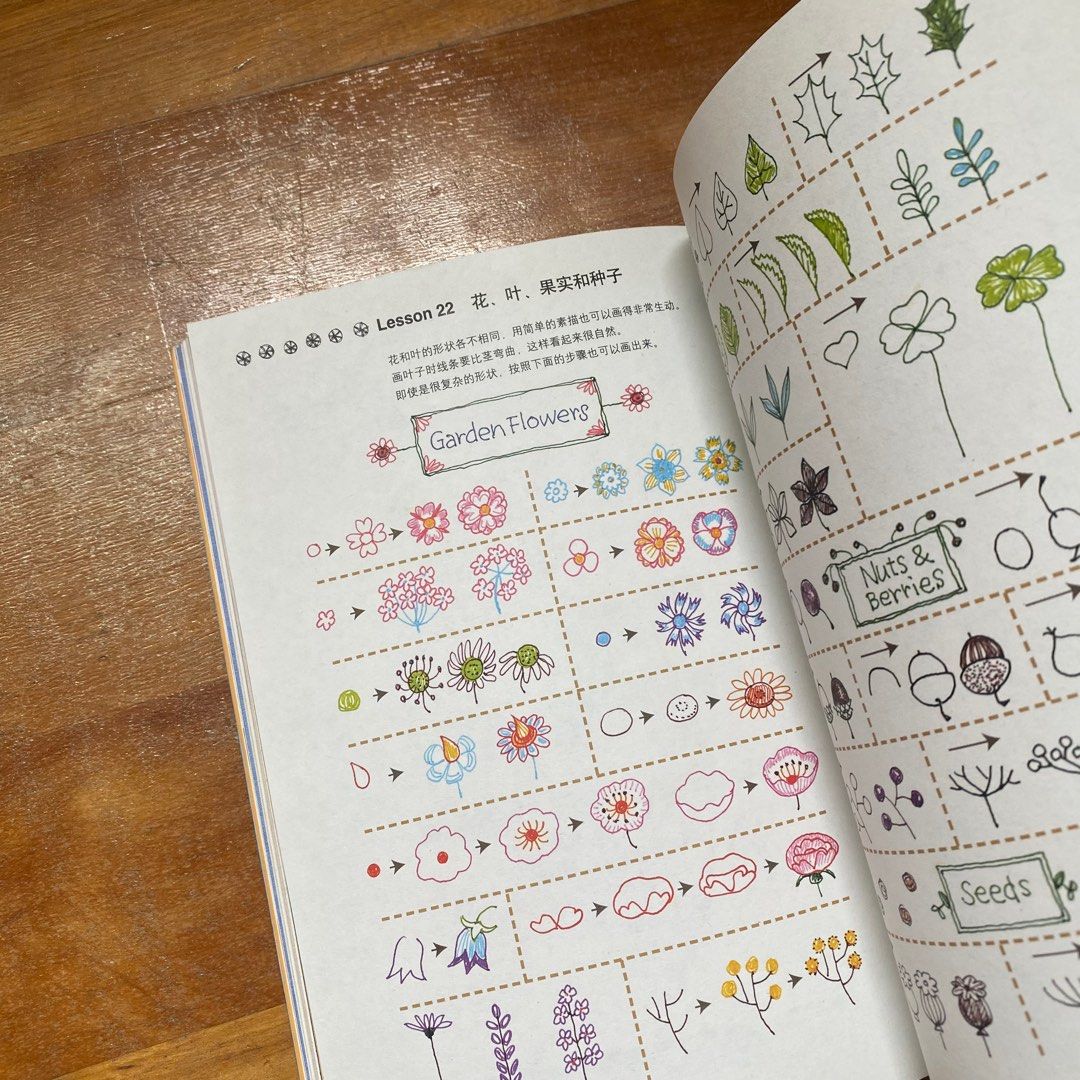 Lesson 22 花、叶、果实和种子
花和叶的形状各不相同，用简单的素描也可以画得非常生动。
画叶子时线条要比茎弯曲，这样看起来很自然。
即使是很复杂的形状，按照下面的步骤也可以画出来。
Garden Flowers
Nuts &
Berries
Seeds